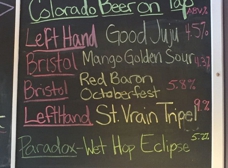 Colorado Beer on Tap
Left Hand Good JuJu 4.5%
Bristol Mango Golden Sour
Bristol Red Baron Octoberfest 5.8%
Left Hand St. Vrain Tripel
Paradox - Wet Hop Eclipse